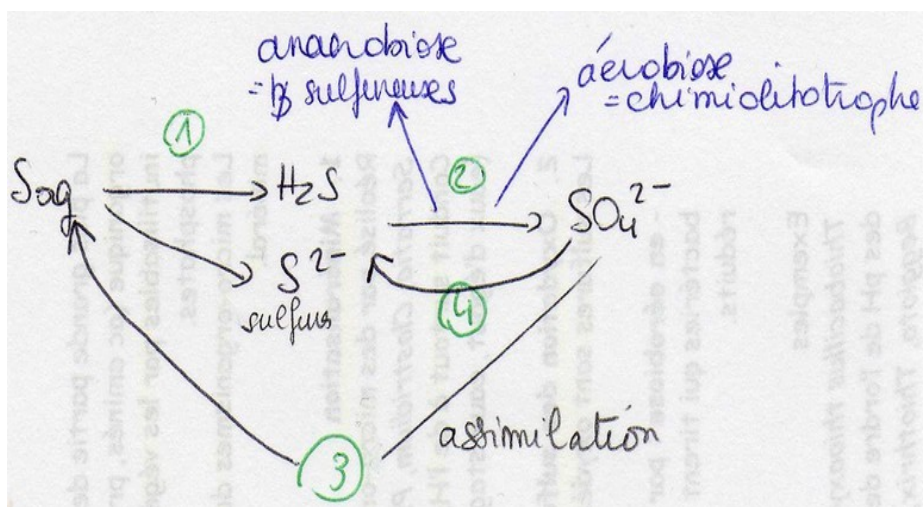 anaérobiose
= B sulfureuses
aérobiose
= chimiolitotrophe
1
Sog
H2S
2
SO4 2-
S2-
sulfures
4
assimilation
3